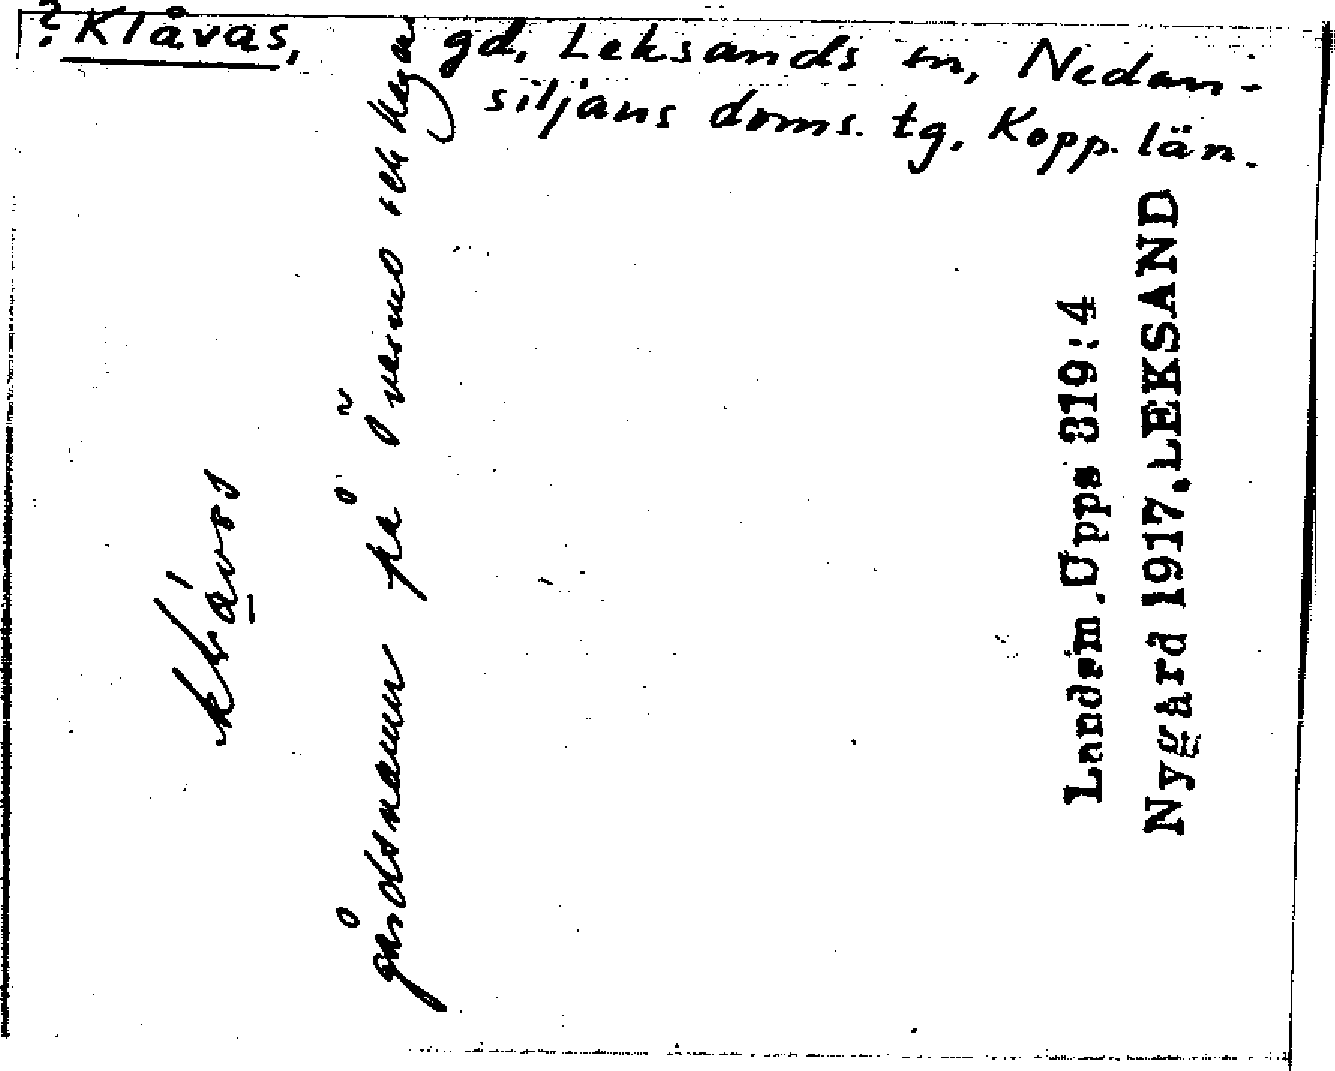 ? Klåvas, gd, Leksands sn, Nedan-
siljans doms. tg, Kopp. län.
gårdsnamn på Övermo och
Landsm. Upps 319:4
Nygård 1917. LEKSAND